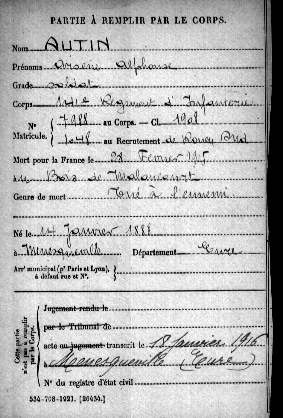 PARTIE À REMPLIR PAR LE CORPS.
Nom AUTIN
Prénoms Arsène Alphonse
Grade soldat
Corps Régiment d'Infanterie
N° Matricule. { 7988 au Corps. — Cl. 1908
1048 au Recrutement de Rouen Sud
Mort pour la France le 28 Février 1915
au Bois de Malancourt
Genre de mort Tué à l'ennemi
Né le 14 Janvier 1888
à Menesqueville Département Eure
Arrt municipal (pr Paris et Lyon), à défaut rue et N°. {
Cette partie n'est pas à remplir par le Corps.
Jugement rendu le
par le Tribunal de
acte ou jugement transcrit le 18 Janvier 1916
à Menesqueville (Eure)
N° du registre d'état civil
534-708-1921. [26434.]